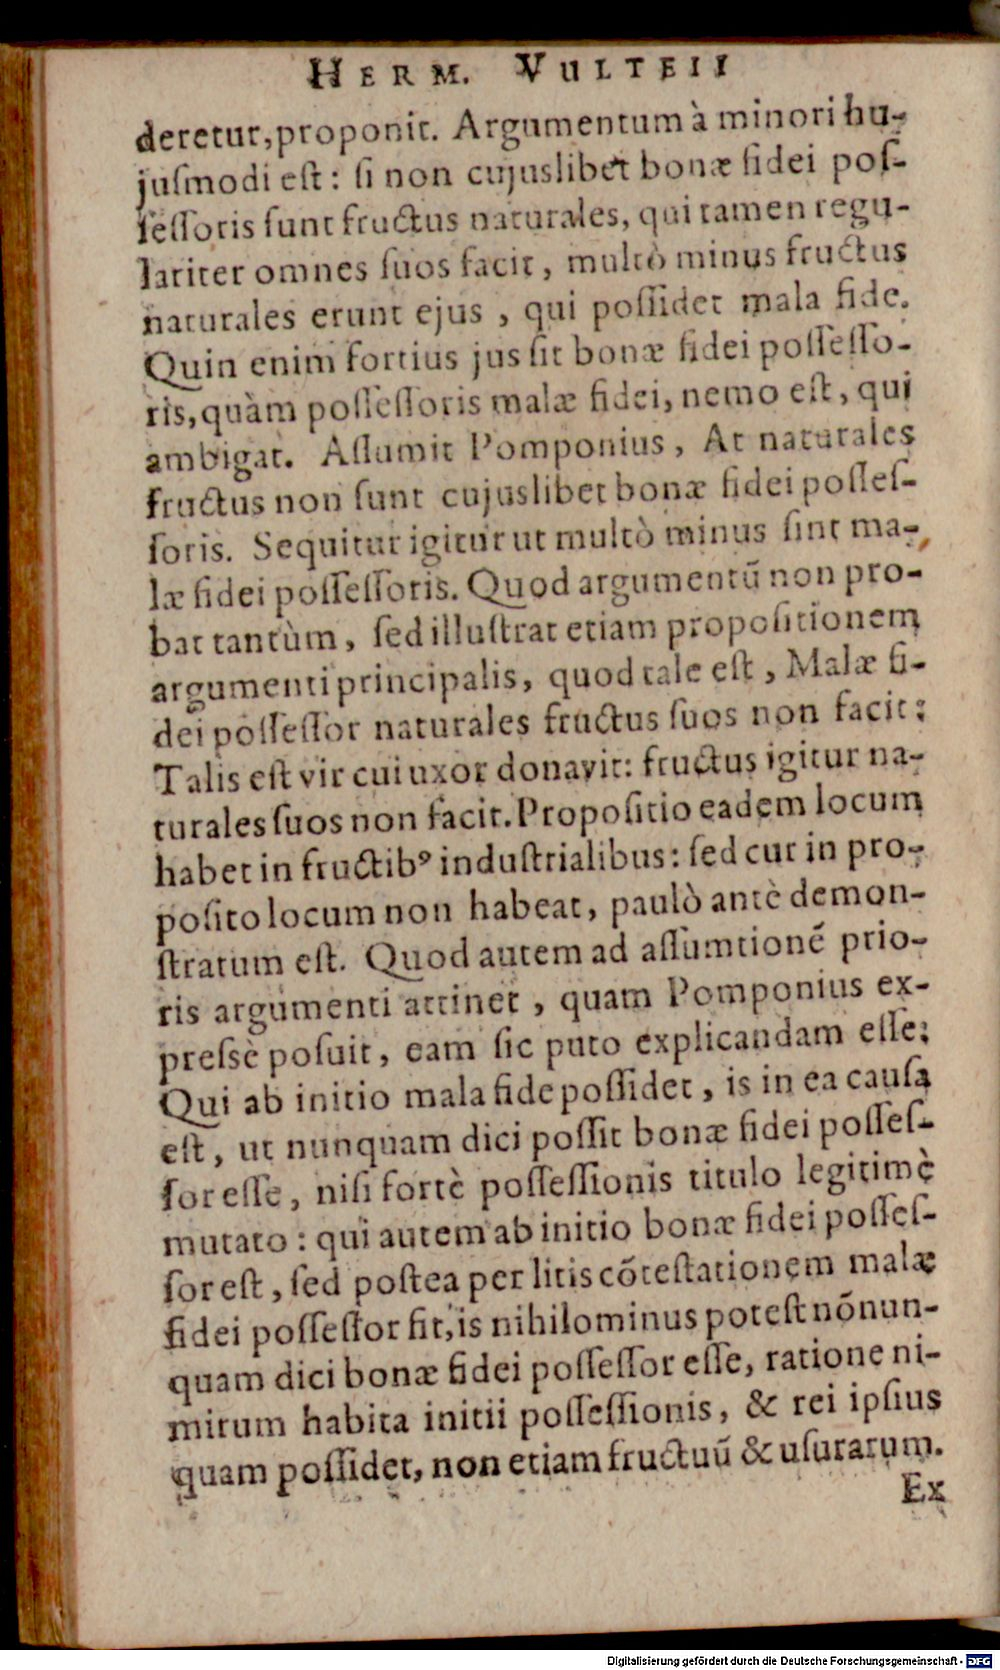 HERM. VULTEII
deretur, proponit. Argumentum à minori hu-
juſmodi eſt: ſi non cujuslibet bonæ fidei poſ-
ſeſſoris ſunt fructus naturales, qui tamen regu-
lariter omnes ſuos facit, multò minus fructus
naturales erunt ejus, qui poſſidet mala fide.
Quin enim fortius jus ſit bonæ fidei poſſeſſo-
ris, quàm poſſeſſoris malæ fidei, nemo eſt, qui
ambigat. Aſſumit Pomponius, At naturales
fructus non ſunt cujuslibet bonæ fidei poſſeſ-
ſoris. Sequitur igitur ut multò minus ſint ma-
læ fidei poſſeſſoris. Quod argumentū non pro-
bat tantùm, ſed illuſtrat etiam propoſitionem
argumenti principalis, quod tale eſt, Malæ fi-
dei poſſeſſor naturales fructus ſuos non facit:
Talis eſt vir cui uxor donavit: fructus igitur na-
turales ſuos non facit. Propoſitio eadem locum
habet in fructibꝰ induſtrialibus: ſed cur in pro-
poſito locum non habeat, paulò antè demon-
ſtratum eſt. Quod autem ad aſſumtionē prio-
ris argumenti attinet, quam Pomponius ex-
preſsè poſuit, eam ſic puto explicandam eſſe:
Qui ab initio mala fide poſſidet, is in ea cauſa
eſt, ut nunquam dici poſſit bonæ fidei poſſeſ-
ſor eſſe, niſi fortè poſſeſſionis titulo legitimè
mutato: qui autem ab initio bonæ fidei poſſeſ-
ſor eſt, ſed poſtea per litis cōteſtationem malæ
fidei poſſeſſor fit, is nihilominus poteſt nōnun-
quam dici bonæ fidei poſſeſſor eſſe, ratione ni-
mirum habita initii poſſeſſionis, & rei ipſius
quam poſſidet, non etiam fructuū & uſurarum.
Ex
Digitalisierung gefördert durch die Deutsche Forschungsgemeinschaft - DFG